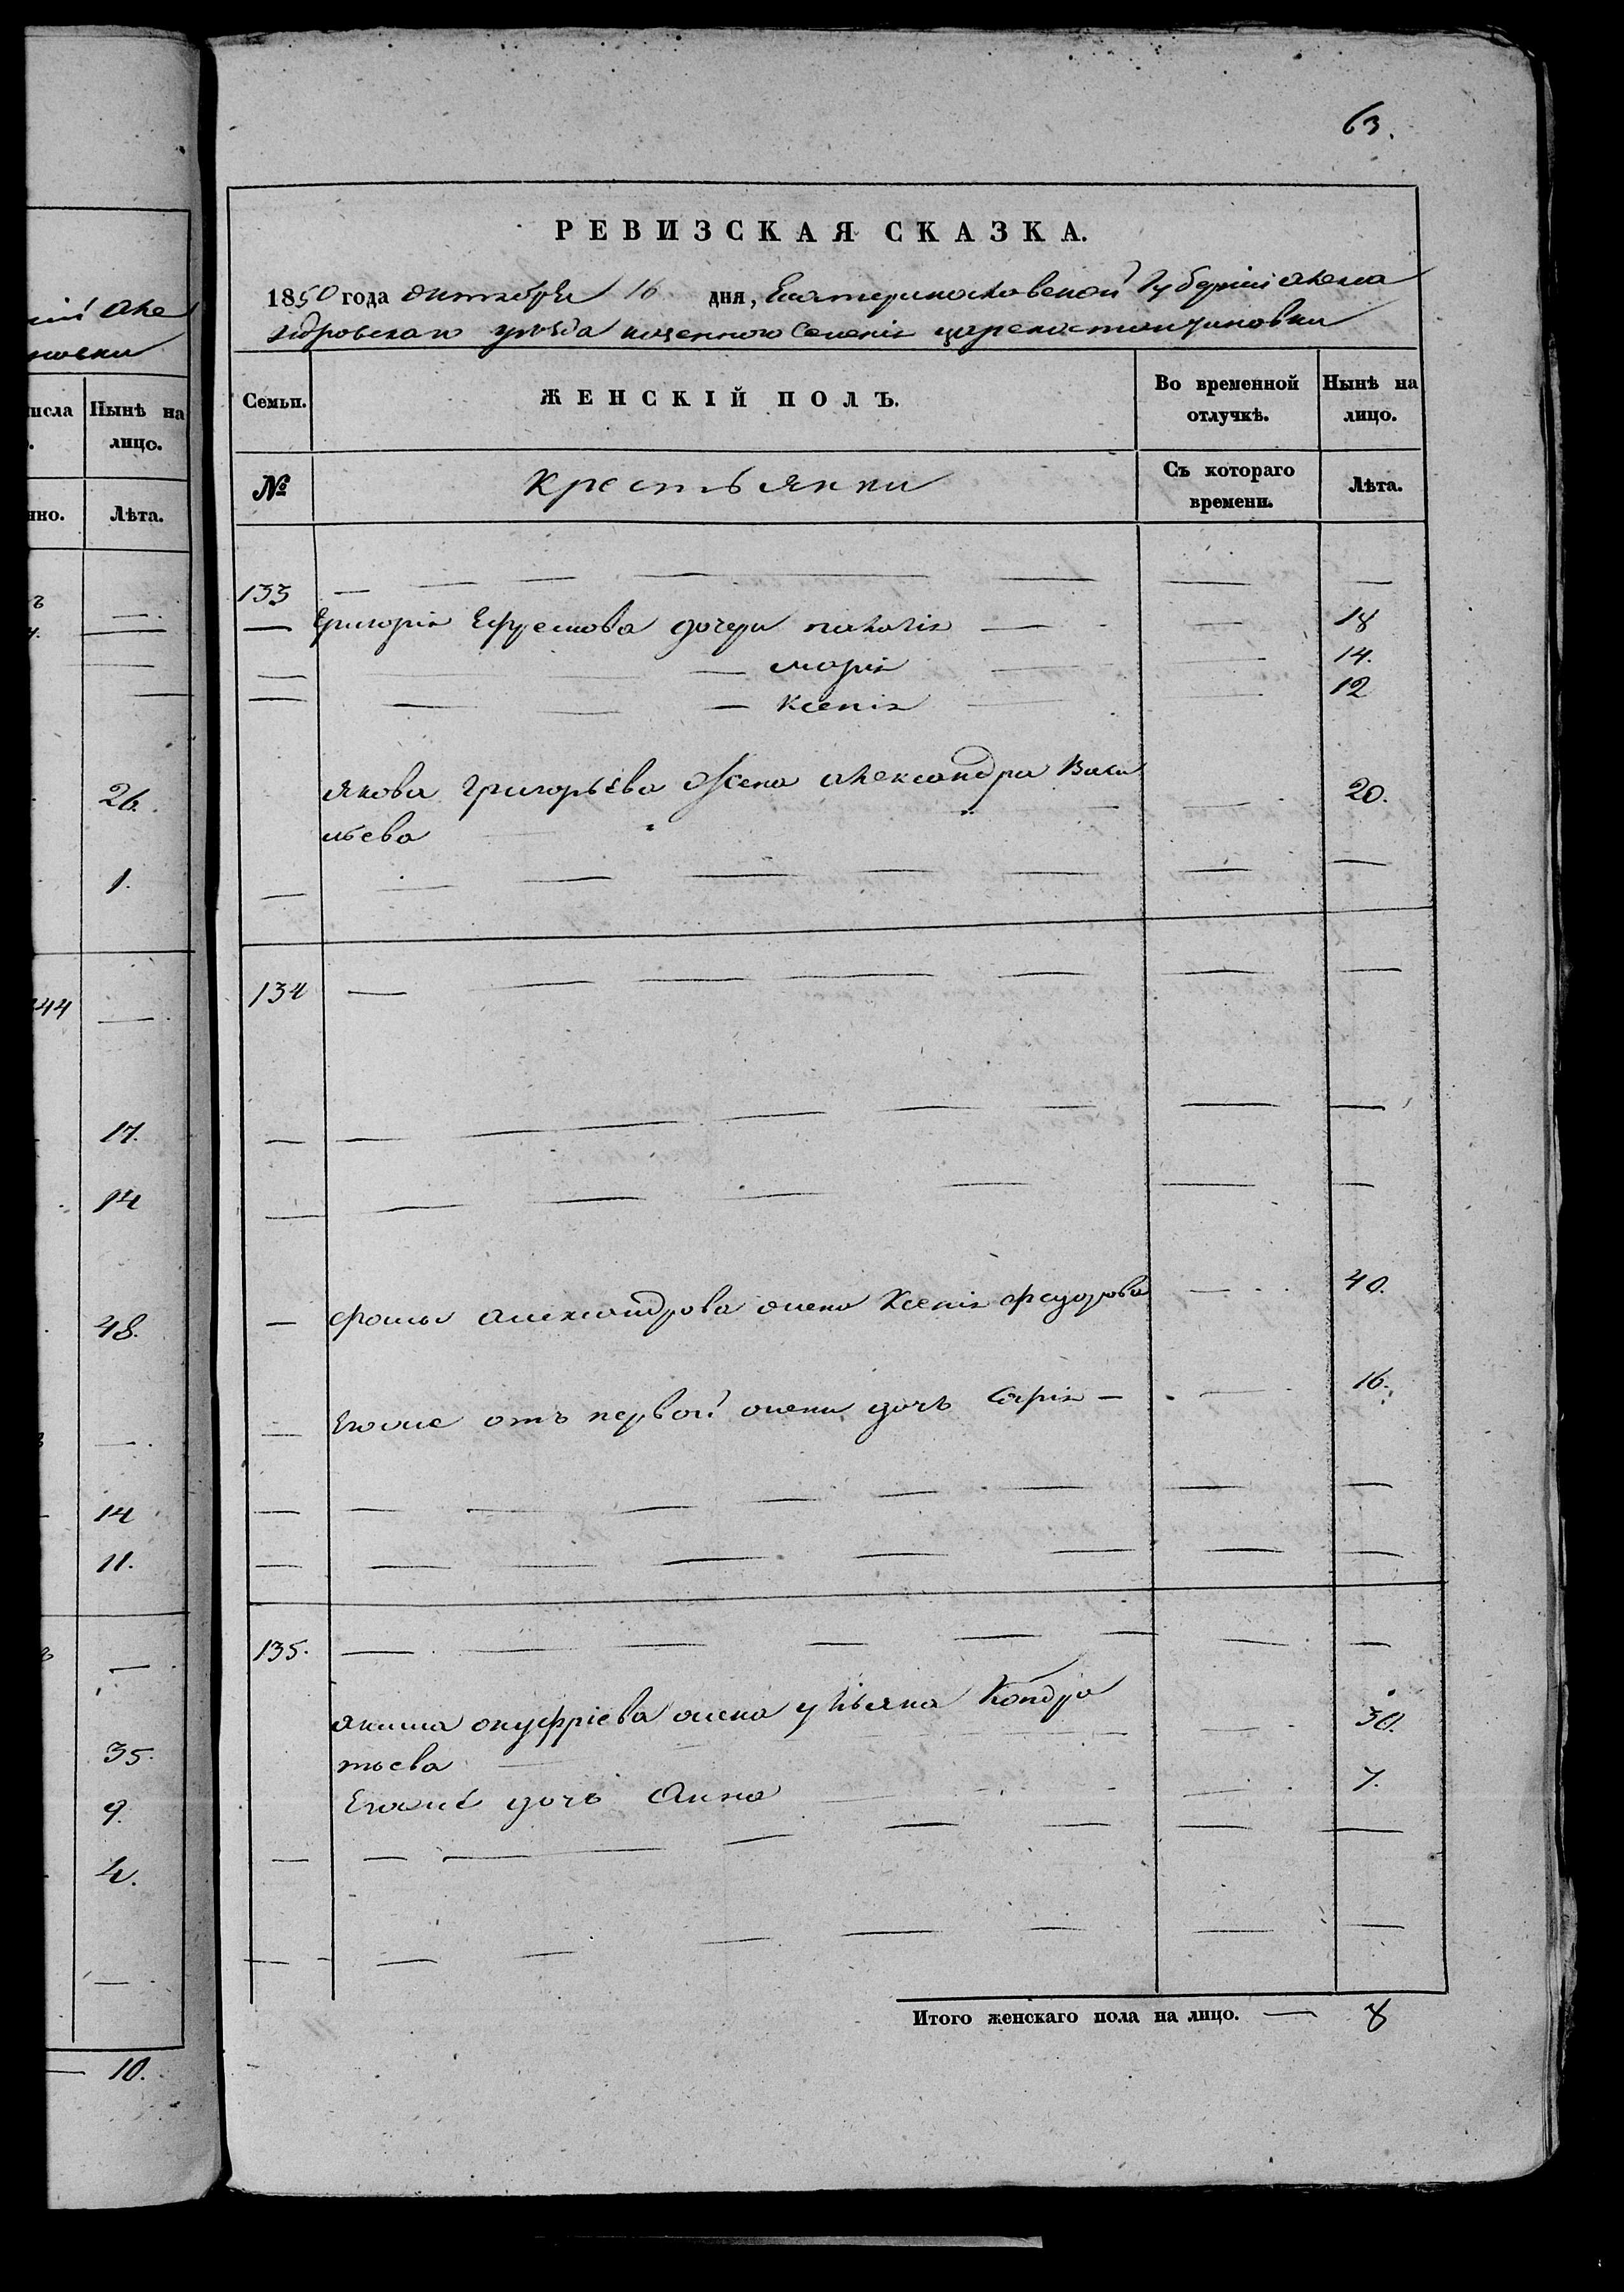 63.
РЕВИЗСКАЯ СКАЗКА.
1850 года октября 16 дня, Екатеринославской Губернии Алекса
ндровскаго уѣзда казенного Селенія Царекостантиновки
Семьи.
ЖЕНСКІЙ ПОЛЪ.
Во временной отлучкѣ.
Нынѣ на лицо.
№
Крестьянки
Съ котораго времени.
Лѣта.
133
Григорія Ефремова дочери 18
— Марія 14.
— Ксенія 12
Якова Григорьева Жена Александра Васи 20.
льева
134
Фомы Александрова жена Ксенія Федорова 40.
Егоже отъ первой жены дочь 16.
135.
Якима онуфріева жена ульяна Кондра 30.
тьева
Егоже дочь Анна 7.
Итого женскаго пола на лицо. — 8
Алекс
Нынѣ на
лицо.
Лѣта.
26.
1.
44
17.
14
48.
14
11.
35.
9.
4.
10.